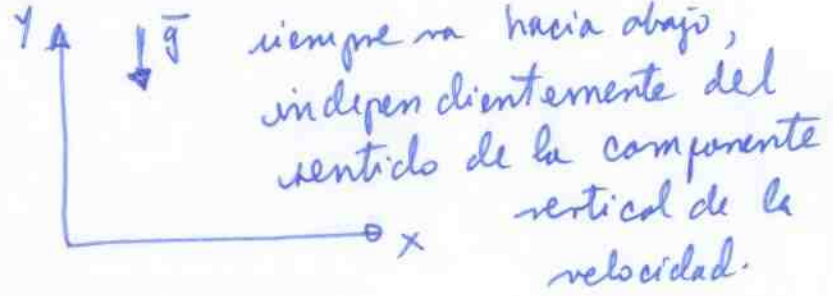 Y g̅ siempre va hacia abajo,
independientemente del
sentido de la componente
vertical de la
X
velocidad.